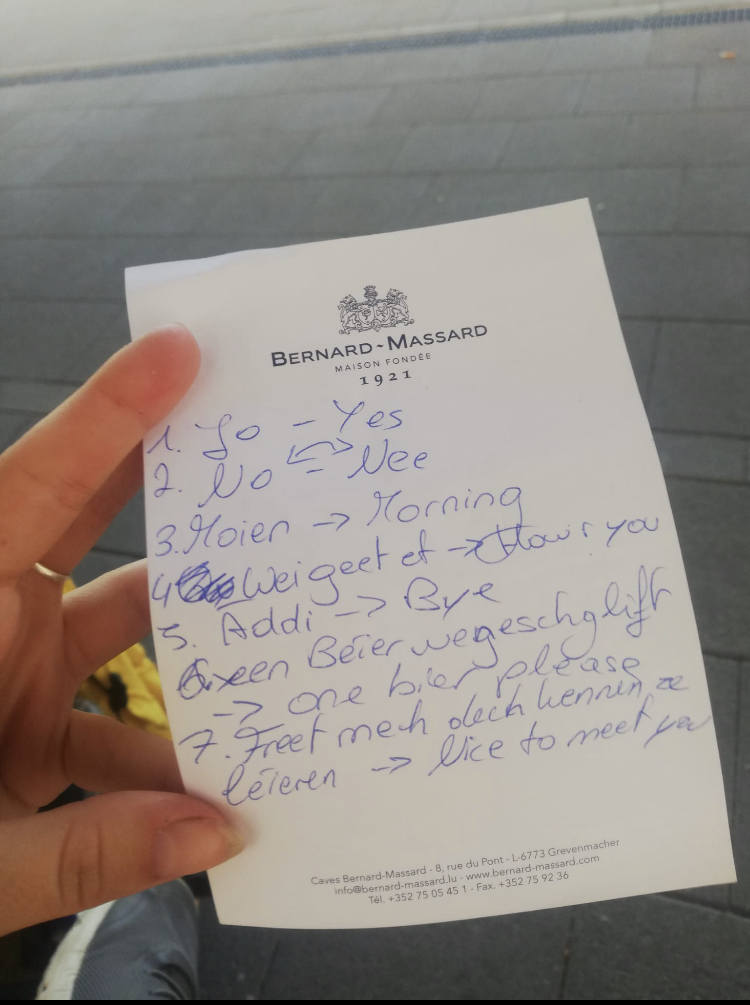 BERNARD-MASSARD
MAISON FONDÉE
1921
1. Jo - Yes
2. No = Nee
3. Moien → Morning
4 Wei geet et → How r you
5. Addi → Bye
6. een Béier wegeschglift
→ one bier please
7. Freet mech dech kennen ze
léieren → Nice to meet you
Caves Bernard-Massard - 8, rue du Pont - L-6773 Grevenmacher
info@bernard-massard.lu - www.bernard-massard.com
Tél. +352 75 05 45 1 - Fax. +352 75 92 36